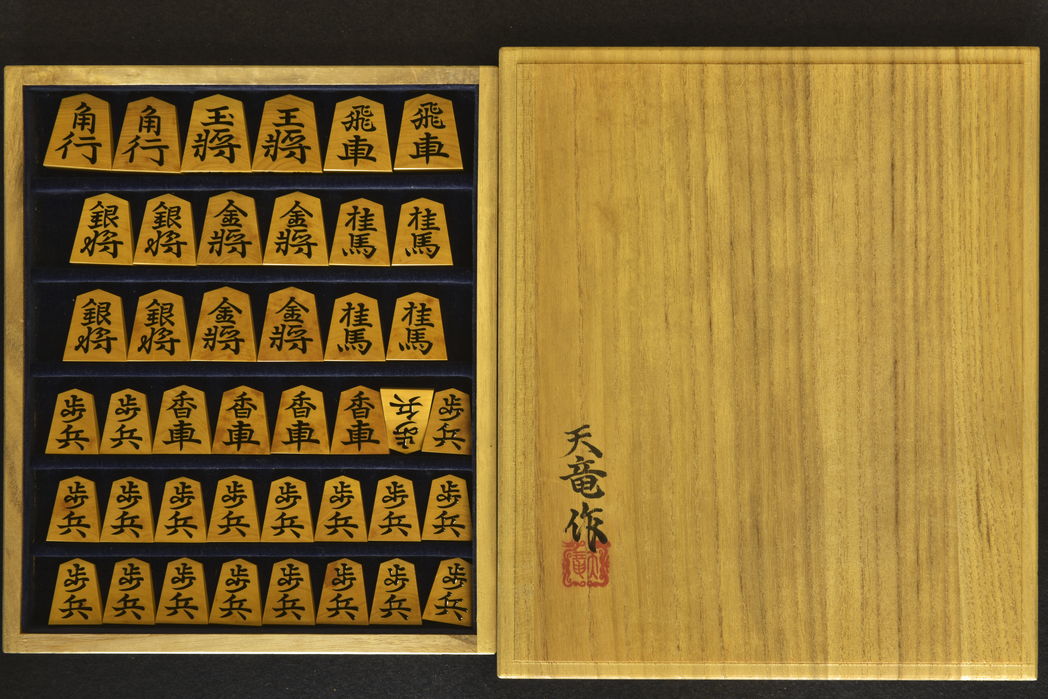 角行 角行 玉將 王將 飛車 飛車
銀将 銀将 金將 金將 桂馬 桂馬
銀将 銀将 金將 金將 桂馬 桂馬
歩兵 歩兵 香車 香車 香車 香車 歩兵 歩兵
歩兵 歩兵 歩兵 歩兵 歩兵 歩兵 歩兵 歩兵
歩兵 歩兵 歩兵 歩兵 歩兵 歩兵 歩兵 歩兵
天竜作